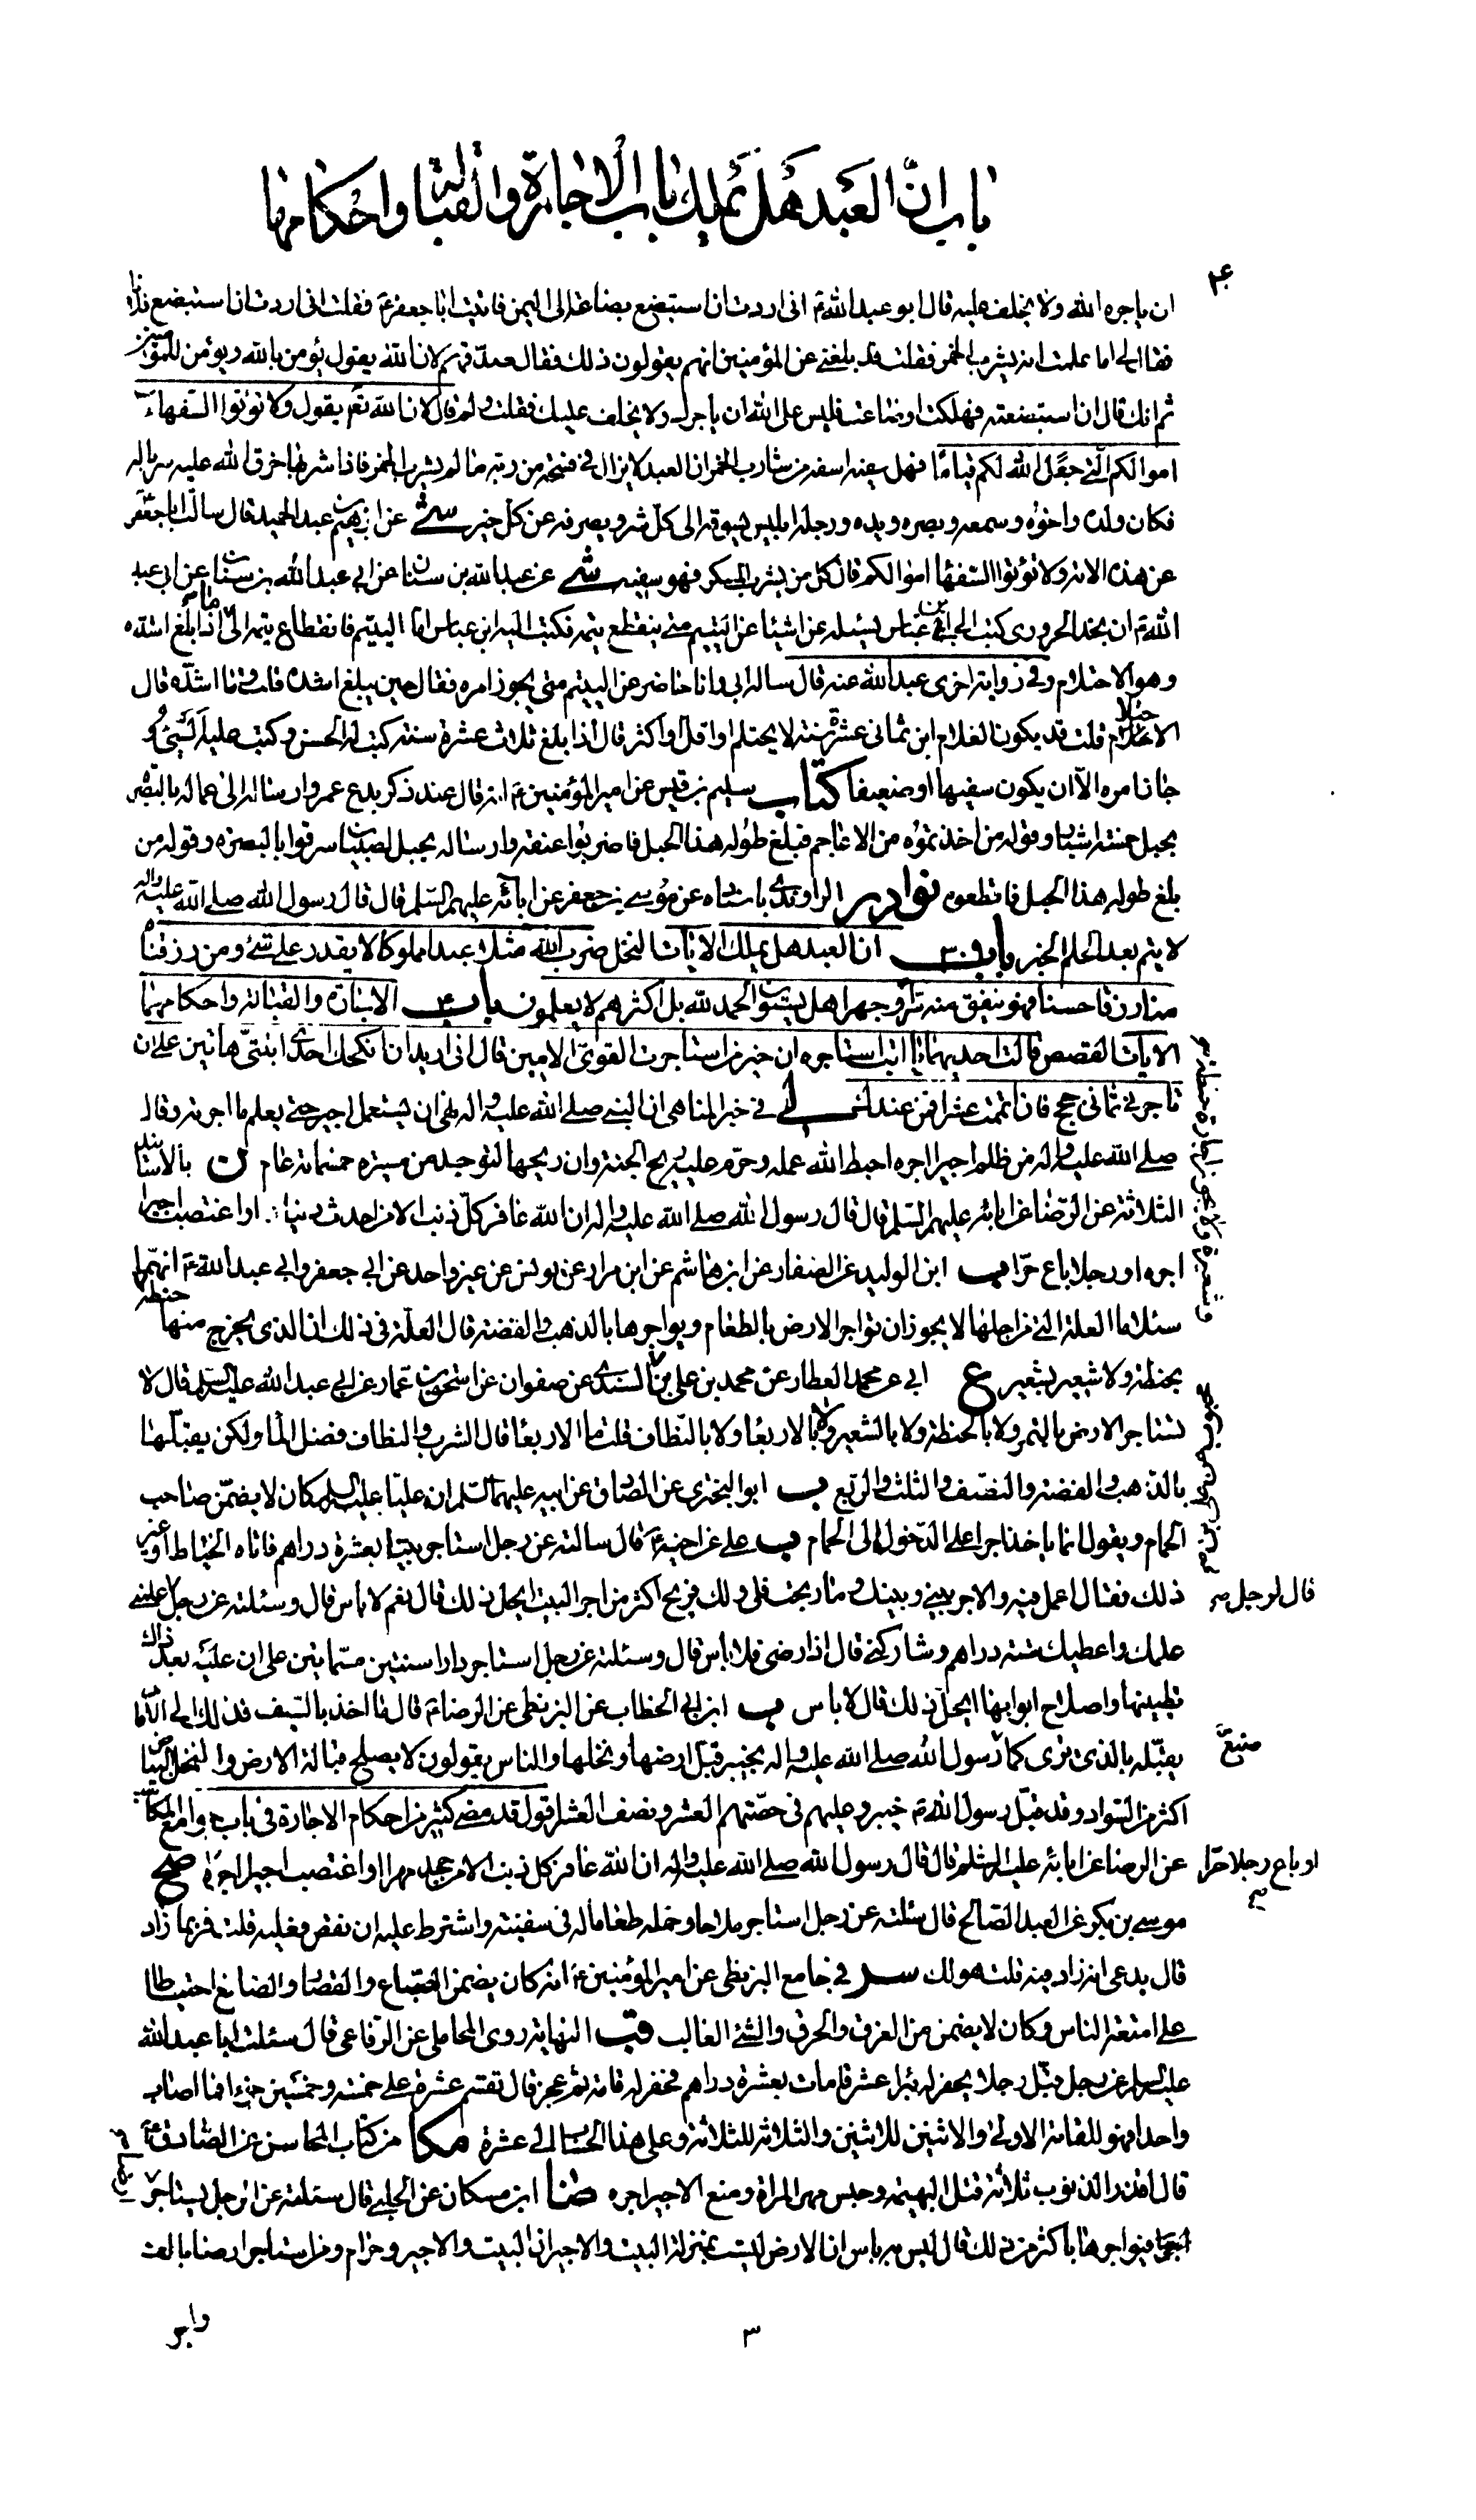 باب ان العبد هل يملك باب الاجارة والقبالة واحكامها
ان ياجره الله ولا يخلف عليه قال ابو عبد الله ع انى اردت ان استبضع بضاعة الى اليمن فاتيت ابا جعفر ع فقلت انى اردت ان استبضع فلانا
فقال لى اما علمت انه يشرب الخمر فقلت قد بلغنى عن المؤمنين انهم يقولون ذلك فقال صدقهم لان الله يقول يؤمن بالله ويؤمن للمؤمنين
ثم انك قال ان استبضعته فهلكت او ضاعت فليس على الله ان ياجرك ولا يخلف عليك فقلت ولم قال لان الله تع يقول ولا تؤتوا السفهاء
اموالكم التى جعل الله لكم قياما فهل سفيه اسفه من شارب الخمر ان العبد لا يزال فى فسحة من ربه ما لم يشرب الخمر فاذا شربها خرق الله عليه سرباله
فكان ولده واخوه وسمعه وبصره ويده ورجله ابليس يسوقه الى كل شر ويصرفه عن كل خير شى عن ابرهيم بن عبد الحميد قال سالت ابا جعفر
عن هذه الاية ولا تؤتوا السفهاء اموالكم قال كل من يشرب المسكر فهو سفيه شى عن عبد الله بن سنان عن ابى عبد الله بن سنان عن ابى عبد
الله ع ان نجدة الحرورى كتب الى ابن عباس يسئله عن اشياء عن اليتيم متى ينقطع يتمه فكتب اليه ابن عباس اما اليتيم فانقطاع يتمه اذا بلغ اشده
وهو الاحتلام وفى رواية اخرى عبد الله عنه قال ساله ابى وانا حاضر عن اليتيم متى يجوز امره فقال حين يبلغ اشده قلت وما اشده قال
الاحتلام قلت قد يكون الغلام ابن ثمانى عشرة سنة لا يحتلم او اقل او اكثر قال اذا بلغ ثلاث عشرة سنة كتب له الحسن وكتب عليه السيئ و
جاز امره الا ان يكون سفيها او ضعيفا كتاب سليم بن قيس عن امير المؤمنين ع انه قال عند ذكر بدع عمر وارساله الى عماله بالبصرة
بحبل خمسة اشبار وقوله من اخذتموه من الاعاجم فبلغ طوله هذا الحبل فاضربوا عنقه وارساله بحبل لصبيان سرقوا بالبصرة وقوله من
بلغ طوله هذا الحبل فاقطعوه نوادر الراوندى باسناده عن موسى بن جعفر عن ابائه عليهم السلم قال قال رسول الله صلى الله عليه واله
لا يتم بعد الحلم الخبر باب ان العبد هل يملك الايات النحل ضرب الله مثلا عبدا مملوكا لا يقدر على شئ ومن رزقناه
منا رزقا حسنا فهو ينفق منه سرا وجهرا هل يستوون الحمد لله بل اكثرهم لا يعلمون باب الاجارة والقبالة واحكامهما
الايات القصص قالت احديهما يا ابت استاجره ان خير من استاجرت القوى الامين قال انى اريد ان انكحك احدى ابنتى هاتين على ان
تاجرنى ثمانى حجج فان اتممت عشرا فمن عندك لى فى خبر المناهى ان النبى صلى الله عليه واله نهى ان يستعمل اجير حتى يعلم ما اجرته وقال
صلى الله عليه واله من ظلم اجيرا اجره احبط الله عمله وحرم عليه ريح الجنة وان ريحها لتوجد من مسيرة خمسماة عام ن بالاسانيد
الثلاثة عن الرضا عن ابائه عليهم السلم قال قال رسول الله صلى الله عليه واله ان الله غافر كل ذنب الا من احدث دينا او اغتصب اجيرا
اجره او رجلا باع حرا ب ابن الوليد عن الصفار عن ابن هاشم عن ابن مرار عن يونس عن غير واحد عن ابى جعفر وابى عبد الله ع انهما
سئلا ما العلة التى من اجلها لا يجوز ان تواجر الارض بالطعام ويواجرها بالذهب والفضة قال العلة فى ذلك ان الذى يخرج منها حنطة
بحنطة ولا شعير بشعير ع ابى عن محمد العطار عن محمد بن على بن السندى عن صفوان عن اسحق بن عمار عن ابى عبد الله عليه السلم قال لا
تستاجر الارض بالتمر ولا بالحنطة ولا بالشعير ولا بالاربعاء ولا بالنطاف قلت ما الاربعاء قال الشرب والنطاف فضل الماء ولكن يقبلها
بالذهب والفضة والنصف والثلث والربع ب ابو البخترى عن الصادق عن ابيه عليهما السلم ان عليا عليه السلم كان لا يضمن صاحب
الحمام ويقول انما ياخذ اجرا على الدخول الى الحمام ب على عن اخيه ع قال سالته عن رجل استاجر بيتا بعشرة دراهم فاتاه الخياط او غير
ذلك فقال اعمل فيه والاجر بينى وبينك وما ربحت فلى ولك فربح اكثر من اجر البيت ايحل ذلك قال نعم لا باس قال وسئلته عن رجل
قال لرجل
علمك واعطيك ستة دراهم وشاركنى قال اذا رضى فلا باس قال وسئلته عن رجل استاجر دارا سنتين مسماتين على ان عليه بعد ذلك
تطيينها واصلاح ابوابها ايحل ذلك قال لا باس ب ابن ابى الخطاب عن البزنطى عن الرضا ع قال ما اخذ بالسيف فذلك الى الامام
يقبله بالذى يرى كما رسول الله صلى الله عليه واله بخيبر قبل ارضها ونخلها والناس يقولون لا يصلح قبالة الارض والنخل
صنع
اكثر من السواد وقد قبل رسول الله ص خيبر وعليهم فى حصتهم العشر ونصف العشر اقول قد مضى كثير من احكام الاجارة فى باب جوامع المكاسب
عن الرضا عن ابائه عليهم السلم قال قال رسول الله صلى الله عليه واله ان الله غافر كل ذنب الا من جحد مهرا او اغتصب اجيرا اجره صح
او باع رجلا حرا
موسى بن بكر عن العبد الصالح قال سئلته عن رجل استاجر ملاحا وحمله طعاما له فى سفينته واشترط عليه ان نقص فعليه قلت فربما زاد
قال يدعى انه زاد فيه قلت هو لك سر فى جامع البزنطى عن امير المؤمنين ع انه كان يضمن الصباغ والقصار والصايغ احتياطا
على امتعة الناس وكان لا يضمن من الغرق والحرق والشئ الغالب قب النهاية روى المحاملى عن الرفاعى قال سئلت ابا عبد الله
عليه السلم عن رجل قبل رجلا يحفر له بئرا عشر قامات بعشرة دراهم فحفر له قامة ثم عجز قال تقسم عشرة على خمسة وخمسين جزءا فما اصاب
واحدا فهو للقامة الاولى والاثنين للاثنين والثلاثة للثلاثة وعلى هذا الحساب الى عشرة مكا من كتاب المحاسن عن الصادق ع
قال اقذر الذنوب ثلاثة قتل البهيمة وحبس مهر المراة ومنع الاجير اجره ضا ابن مسكان عن الحلبى قال سئلته عن الرجل يستاجر
فيواجرها باكثر من ذلك قال ليس به باس ان الارض ليست بمنزلة البيت والاجير ان البيت والاجير حرام ومن استاجر ارضا بالف
٣